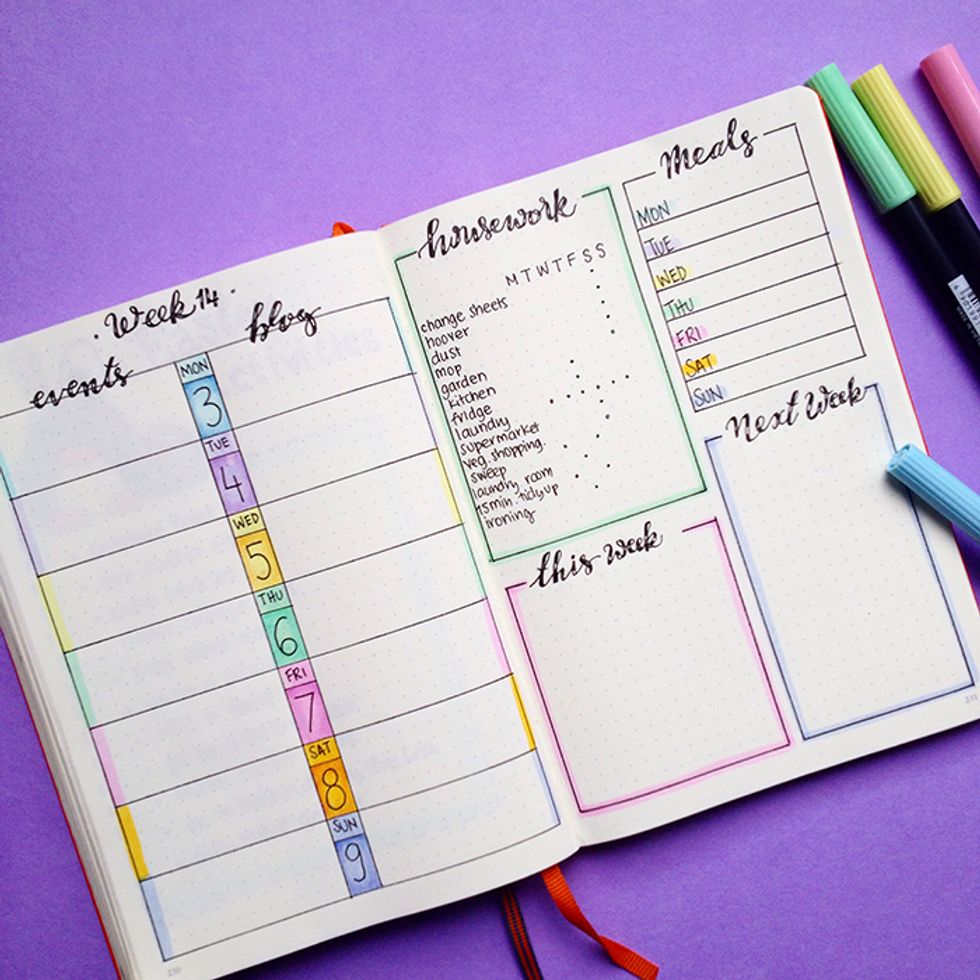 · Week 14 ·
events
blog
MON
3
TUE
4
WED
5
THU
6
FRI
7
SAT
8
SUN
9
230
housework
M T W T F S S
change sheets
hoover
dust
mop
garden
kitchen
fridge
laundry
supermarket
veg. shopping.
sweep
laundry room
15min. tidy up
ironing
this week
Meals
MON
TUE
WED
THU
FRI
SAT
SUN
Next Week